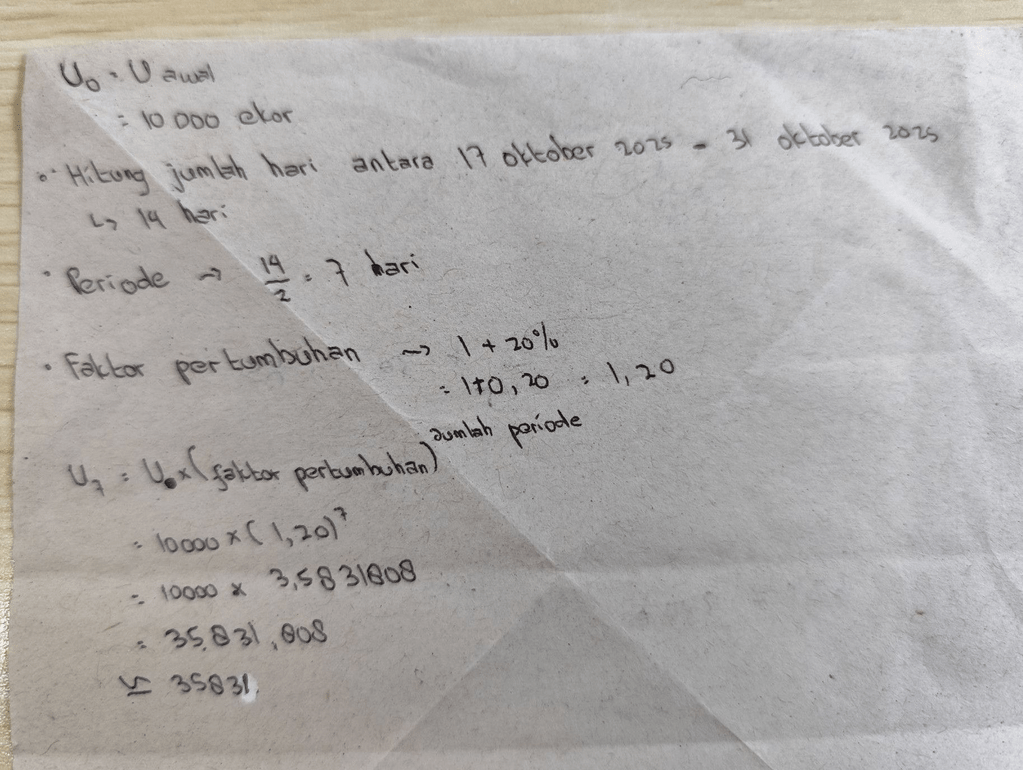 U₀ = U awal
= 10 000 ekor
•• Hitung jumlah hari antara 17 oktober 2025 - 31 oktober 2025
↳ 14 hari
• Periode → 14/2 = 7 hari
• Faktor pertumbuhan → 1 + 20%
= 1+0,20 = 1,20
U₇ = U₀ x (faktor pertumbuhan)^Jumlah periode
= 10000 x (1,20)⁷
= 10000 x 3,5831808
= 35.831,808
≌ 35831